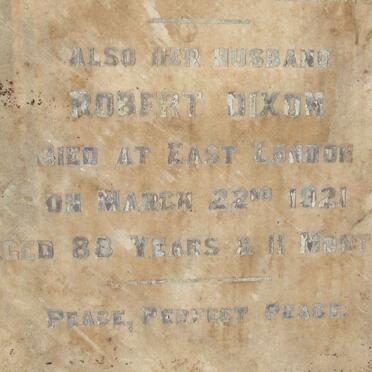 ALSO HER HUSBAND
ROBERT DIXON
DIED AT EAST LONDON
ON MARCH 22ND 1921
GED 88 YEARS & 11 MONT
PEACE, PERFECT PEACE.